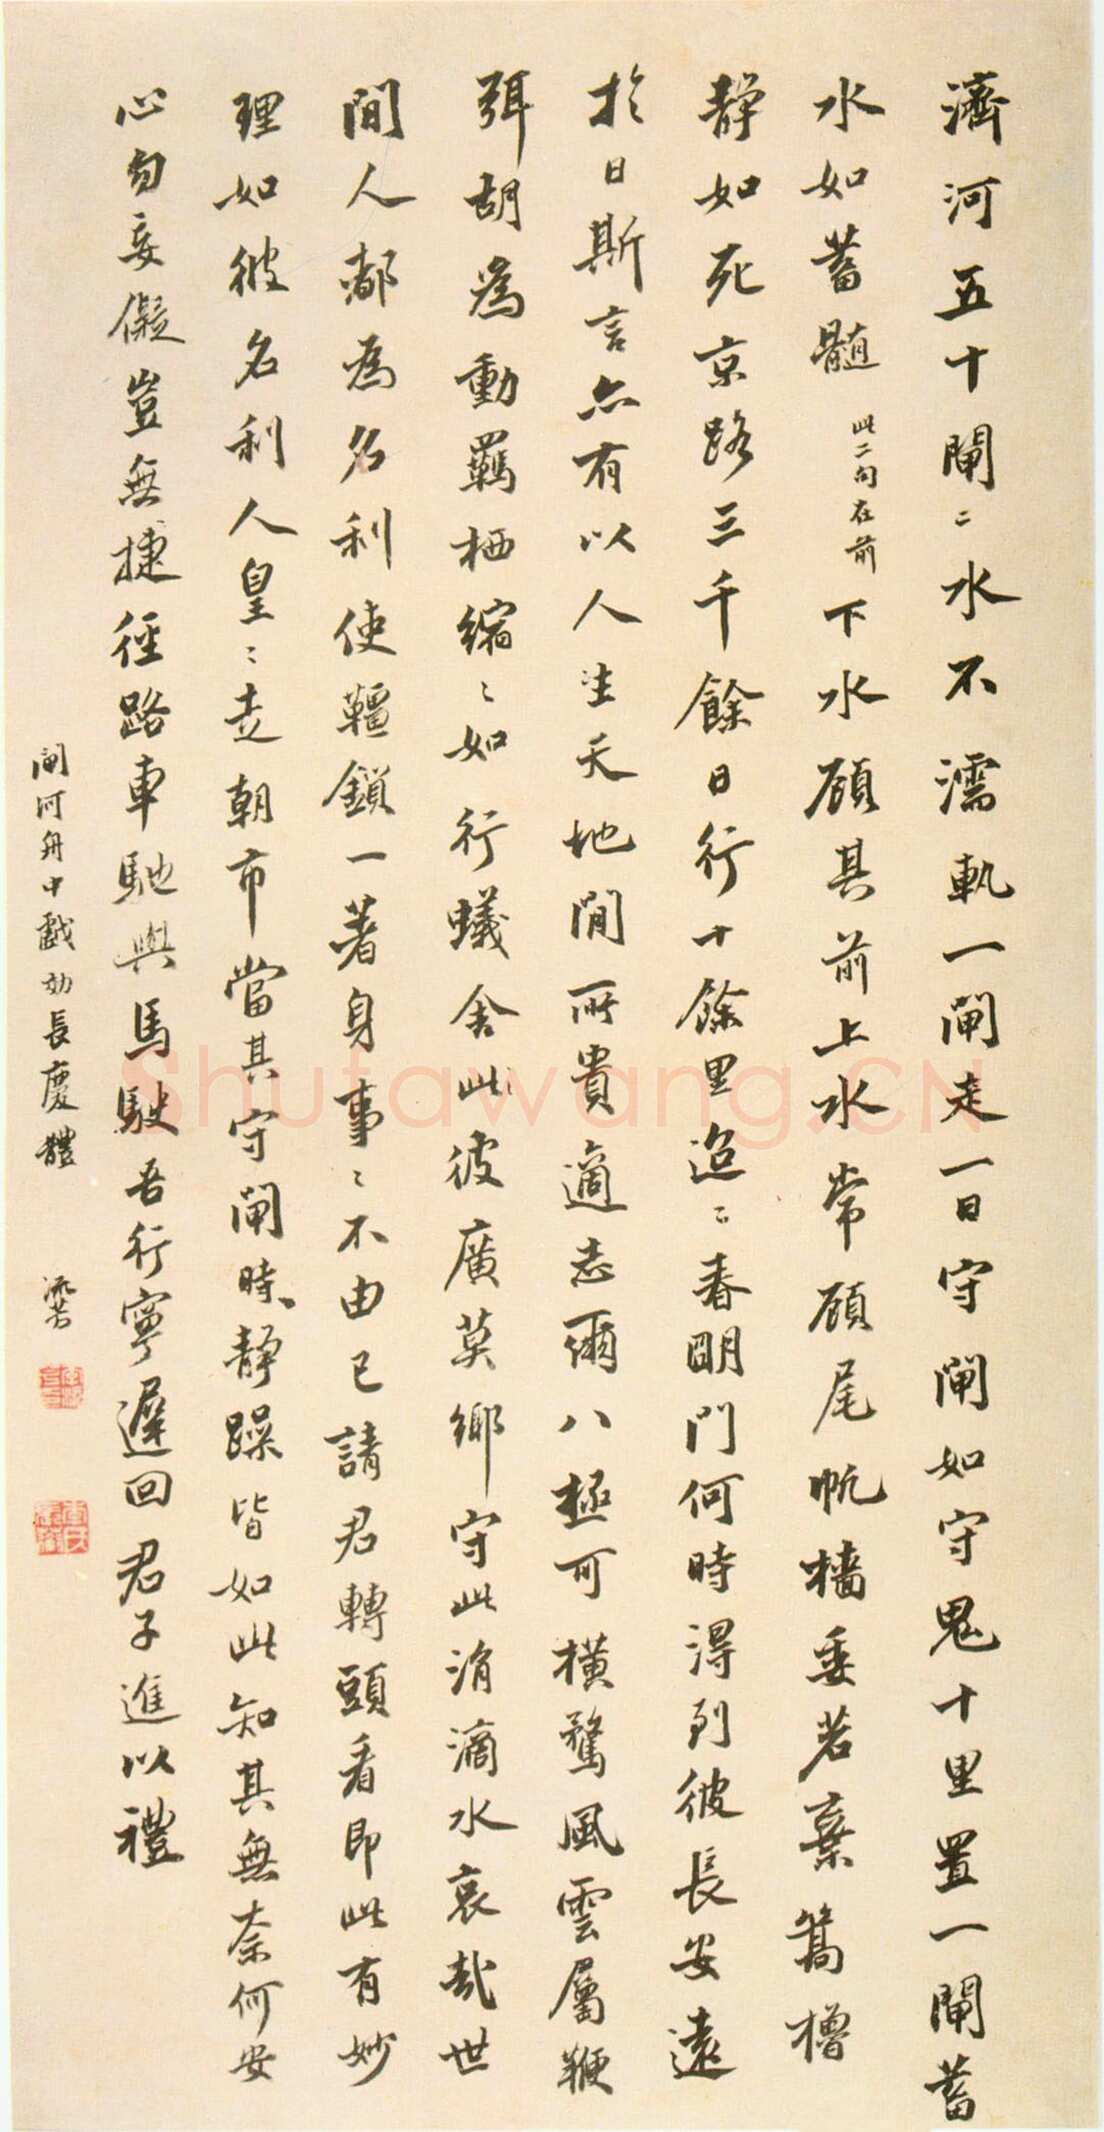 濟河五十閘〻水不濡軌一閘走一日守閘如守鬼十里置一閘蓄
水如蓄髓此二句在前下水顧其前上水常顧尾帆檣委若棄篙櫓
靜如死京路三千餘日行十餘里迢〻春明門何時得到彼長安遠
於日斯言亦有以人生天地間所貴適志爾八極可橫騖風雲屬鞭
弭胡為動羈栖縮〻如行蟻舍此彼廣莫鄉守此涓滴水哀哉世
間人都為名利使韁鎖一著身事〻不由已請君轉頭看即此有妙
理如彼名利人皇〻走朝市當其守閘時靜躁皆如此知其無奈何安
心勿妄儗豈無捷徑路車馳與馬駛吾行寧遲回君子進以禮
閘河舟中戲効長慶體 流芳
Shufawang.CN